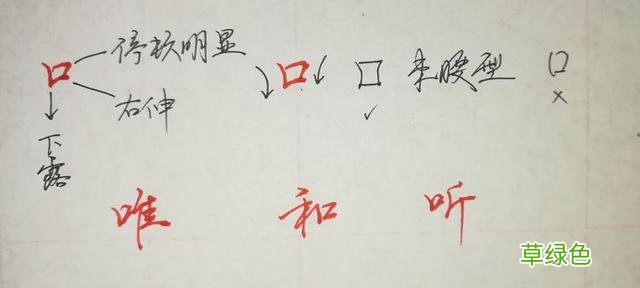 停按明显
口 口 口 束腰型 口
右伸
下露
唯 和 听
草绿色